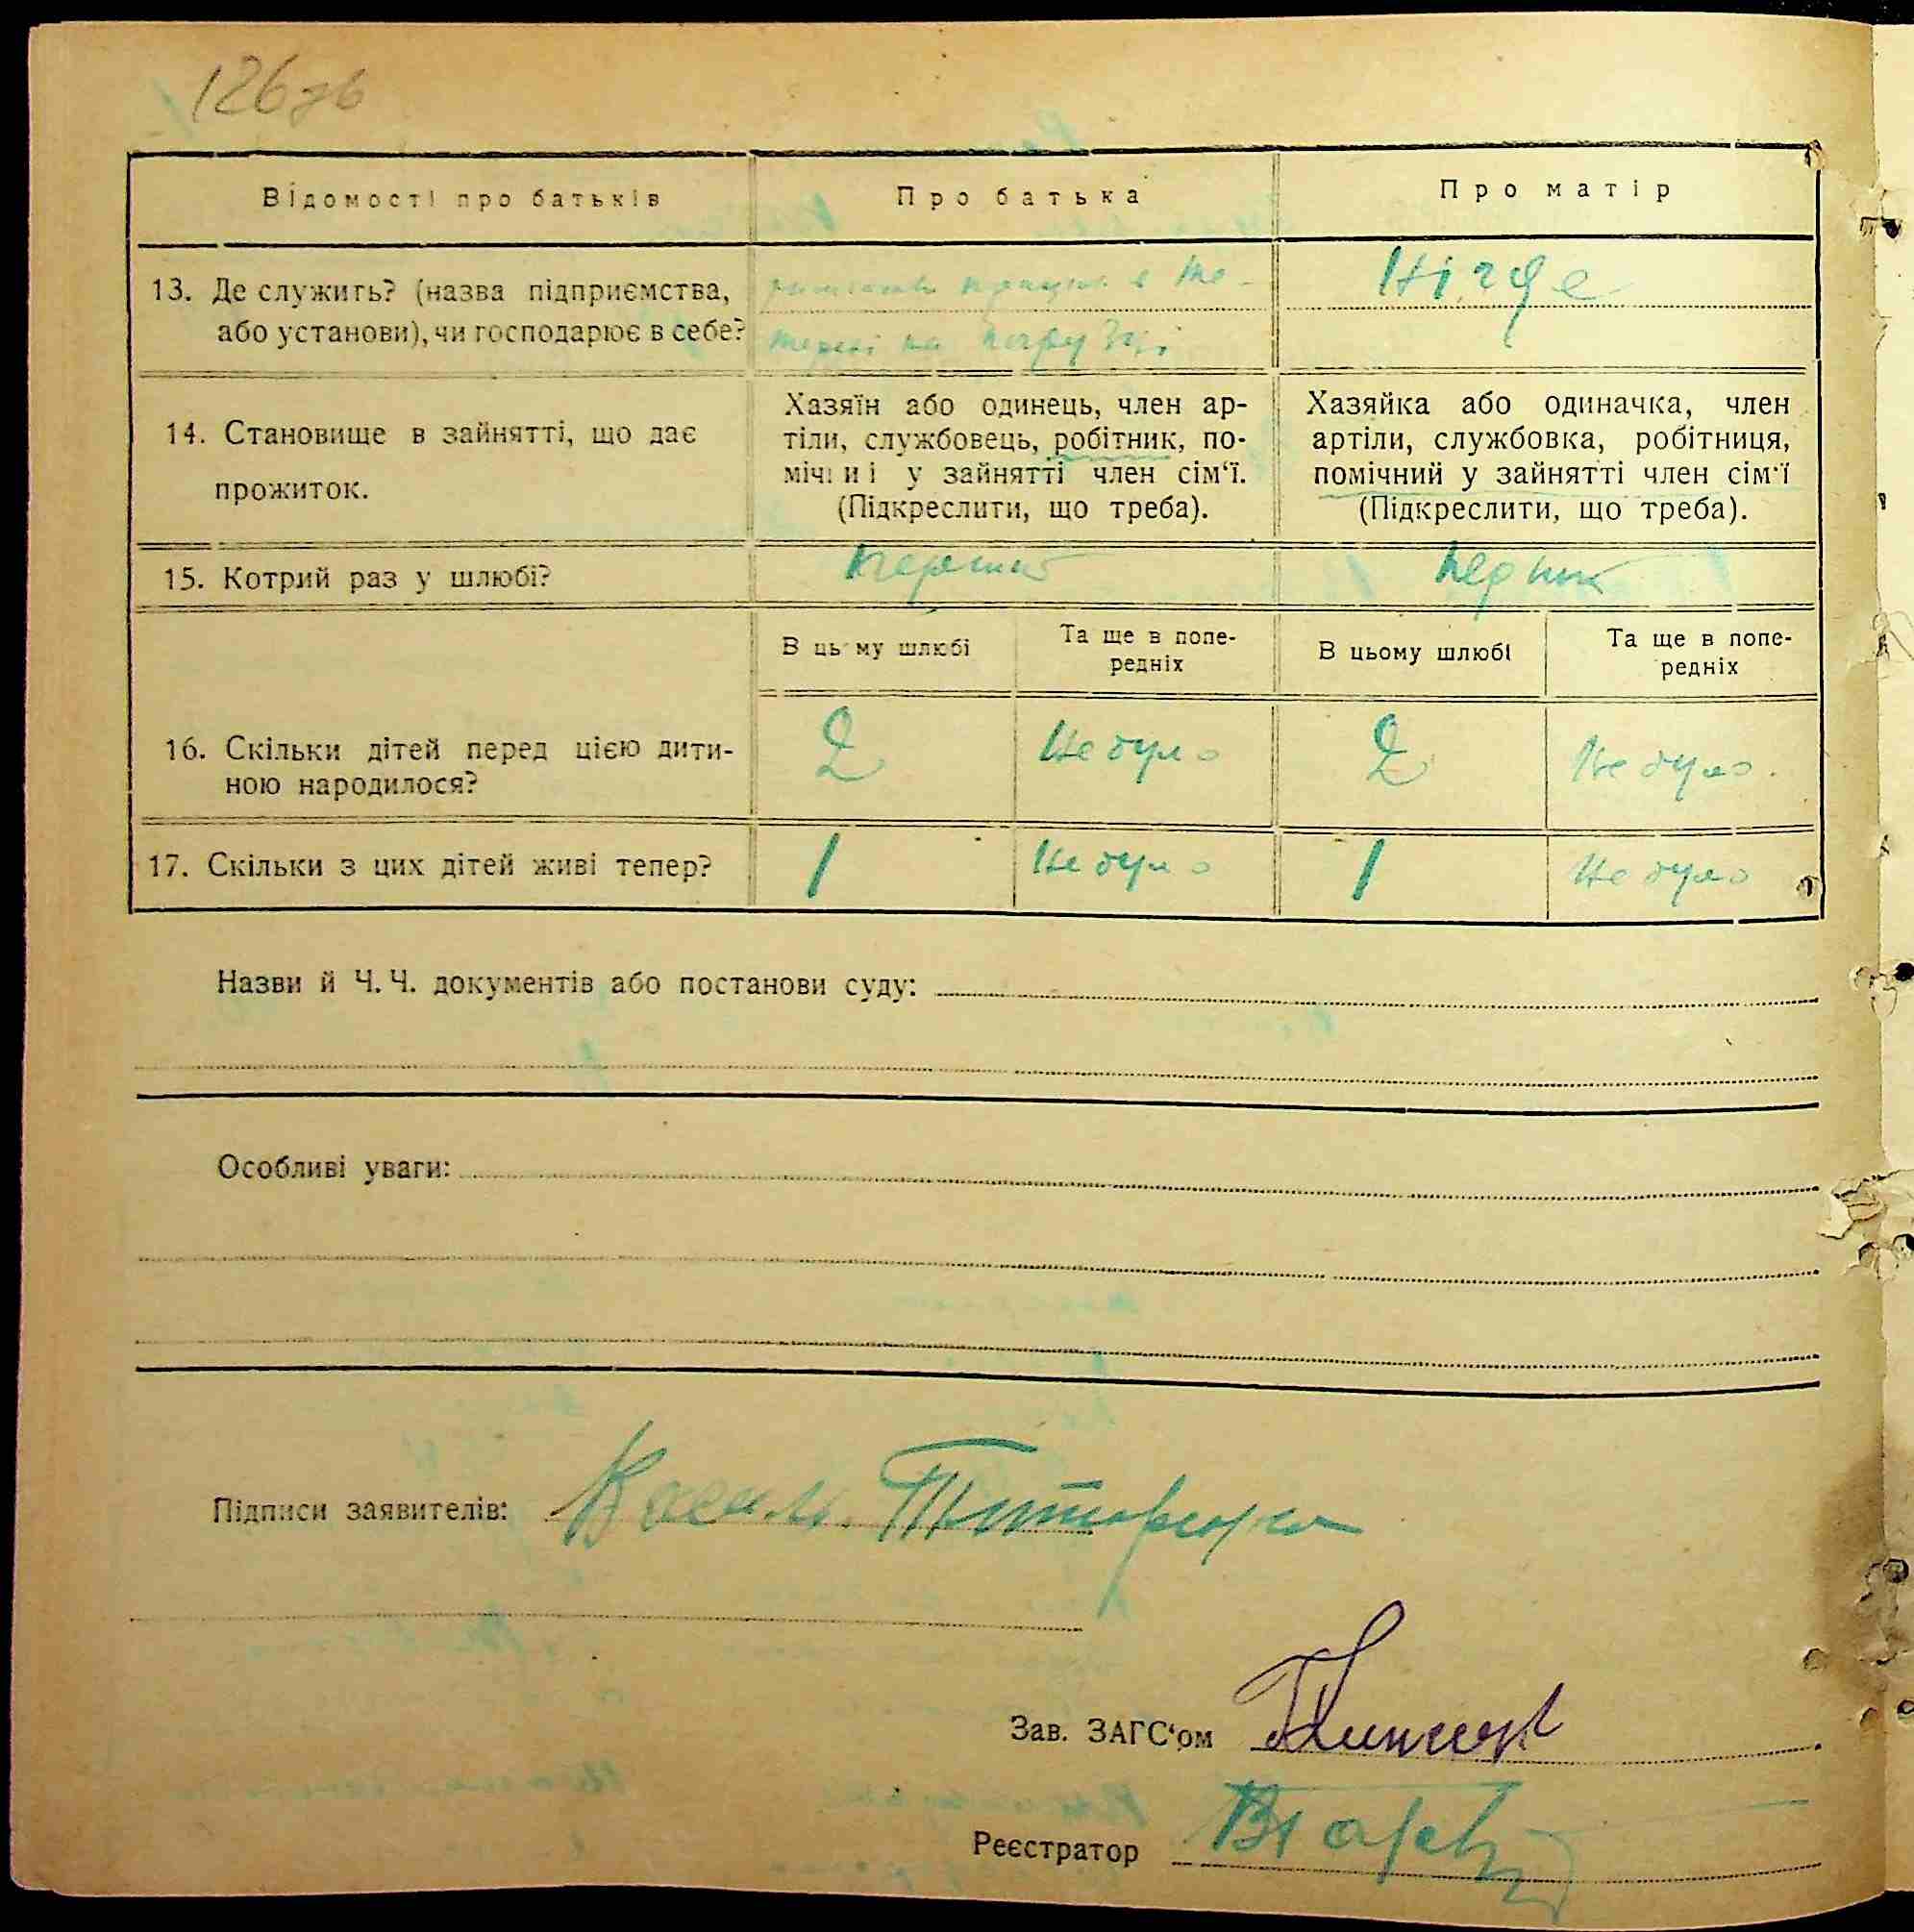 126зв
Відомості про батьків
Про батька
Про матір
13. Де служить? (назва підприємства,
або установи), чи господарює в себе?
на
Нігде
14. Становище в зайнятті, що дає
прожиток.
Хазяїн або одинець, член ар-
тіли, службовець, робітник, по-
мічний у зайнятті член сім‘ї.
(Підкреслити, що треба).
Хазяйка або одиначка, член
артіли, службовка, робітниця,
помічний у зайнятті член сім‘ї
(Підкреслити, що треба).
15. Котрий раз у шлюбі?
перший
перший
В цьому шлюбі
Та ще в попе-
редніх
В цьому шлюбі
Та ще в попе-
редніх
16. Скільки дітей перед цією дити-
ною народилося?
2
Не було
2
Не було.
17. Скільки з цих дітей живі тепер?
1
Не було
1
Не було
Назви й Ч. Ч. документів або постанови суду:
Особливі уваги:
Підписи заявителів:
Зав. ЗАГС‘ом
Реєстратор